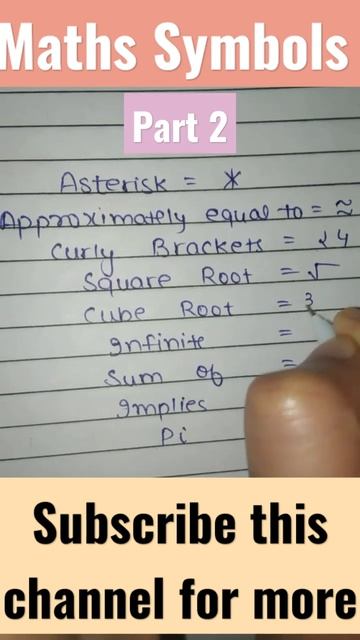 Maths Symbols
Part 2
Asterisk = *
Approximately equal to = ≈
Curly Brackets = {}
Square Root = √
Cube Root = 3
Infinite =
Sum of =
Implies
Pi
Subscribe this
channel for more